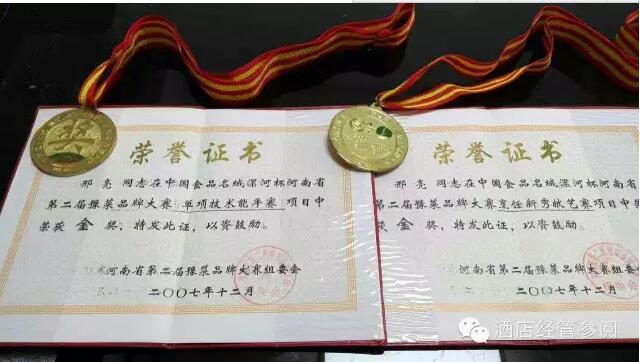 奖
荣誉证书
邢亮 同志在中国食品名城漯河杯河南省
第二届豫菜品牌大赛 单项技术能手赛 项目中
荣获 金 奖,特发此证,以资鼓励。
河南省第二届豫菜品牌大赛组委会
二〇〇七年十二月
荣誉证书
邢亮 同志在中国食品名城漯河杯河南省
第二届豫菜品牌大赛烹饪新秀技艺赛项目中
荣获 金 奖,特发此证,以资鼓励。
河南省第二届豫菜品牌大赛组委会
二〇〇七年十二月
酒店经管参阅